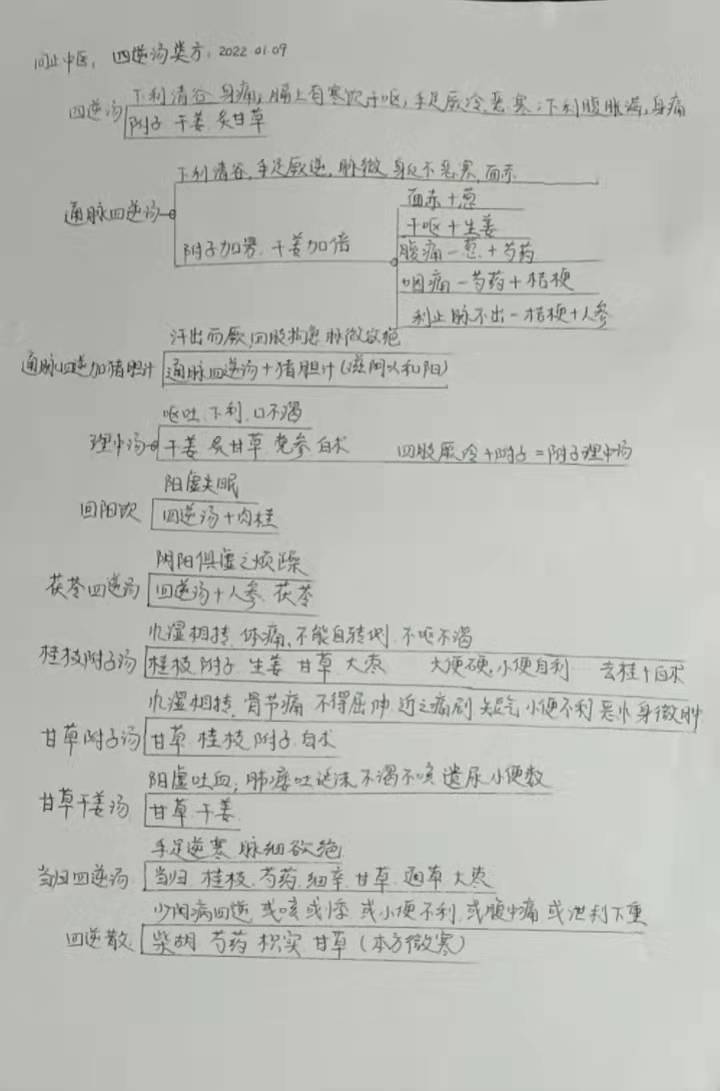 问止中医，四逆汤类方，2022.01.09
下利清谷 身痛，膈上有寒饮干呕，手足厥冷 恶寒；下利腹胀满，身痛
四逆汤 附子 干姜 炙甘草
下利清谷，手足厥逆，脉微 身反不恶寒，面赤
面赤+葱
通脉四逆汤
干呕+生姜
附子加male 干姜加倍
腹痛-葱+芍药
咽痛-芍药+桔梗
利止脉不出-桔梗+人参
汗出而厥，四肢拘急 脉微欲绝
通脉四逆加猪胆汁 通脉四逆汤+猪胆汁(滋阴以和阳)
呕吐、下利、口不渴
理中汤 干姜 炙甘草 党参 白术 四肢厥冷+附子=附子理中汤
阳虚失眠
回阳饮 四逆汤+肉桂
阴阳俱虚之烦躁
茯苓四逆汤 四逆汤+人参 茯苓
体痛，不能自转侧，不呕不渴
桂枝附子汤 桂枝 附子 生姜 甘草 大枣 大便硬，小便自利 去桂+白术
骨节痛 不得屈伸 近之痛剧 短气 小便不利 恶风 身微肿
甘草附子汤 甘草 桂枝 附子 白术
阳虚吐血，肺痿吐涎沫 不渴不咳 遗尿 小便数
甘草干姜汤 甘草 干姜
手足逆寒 脉细欲绝
当归四逆汤 当归 桂枝 芍药 细辛 甘草 通草 大枣
少阴病四逆 或咳 或悸 或小便不利 或腹中痛 或泄利下重
四逆散 柴胡 芍药 枳实 甘草 (本方微寒)